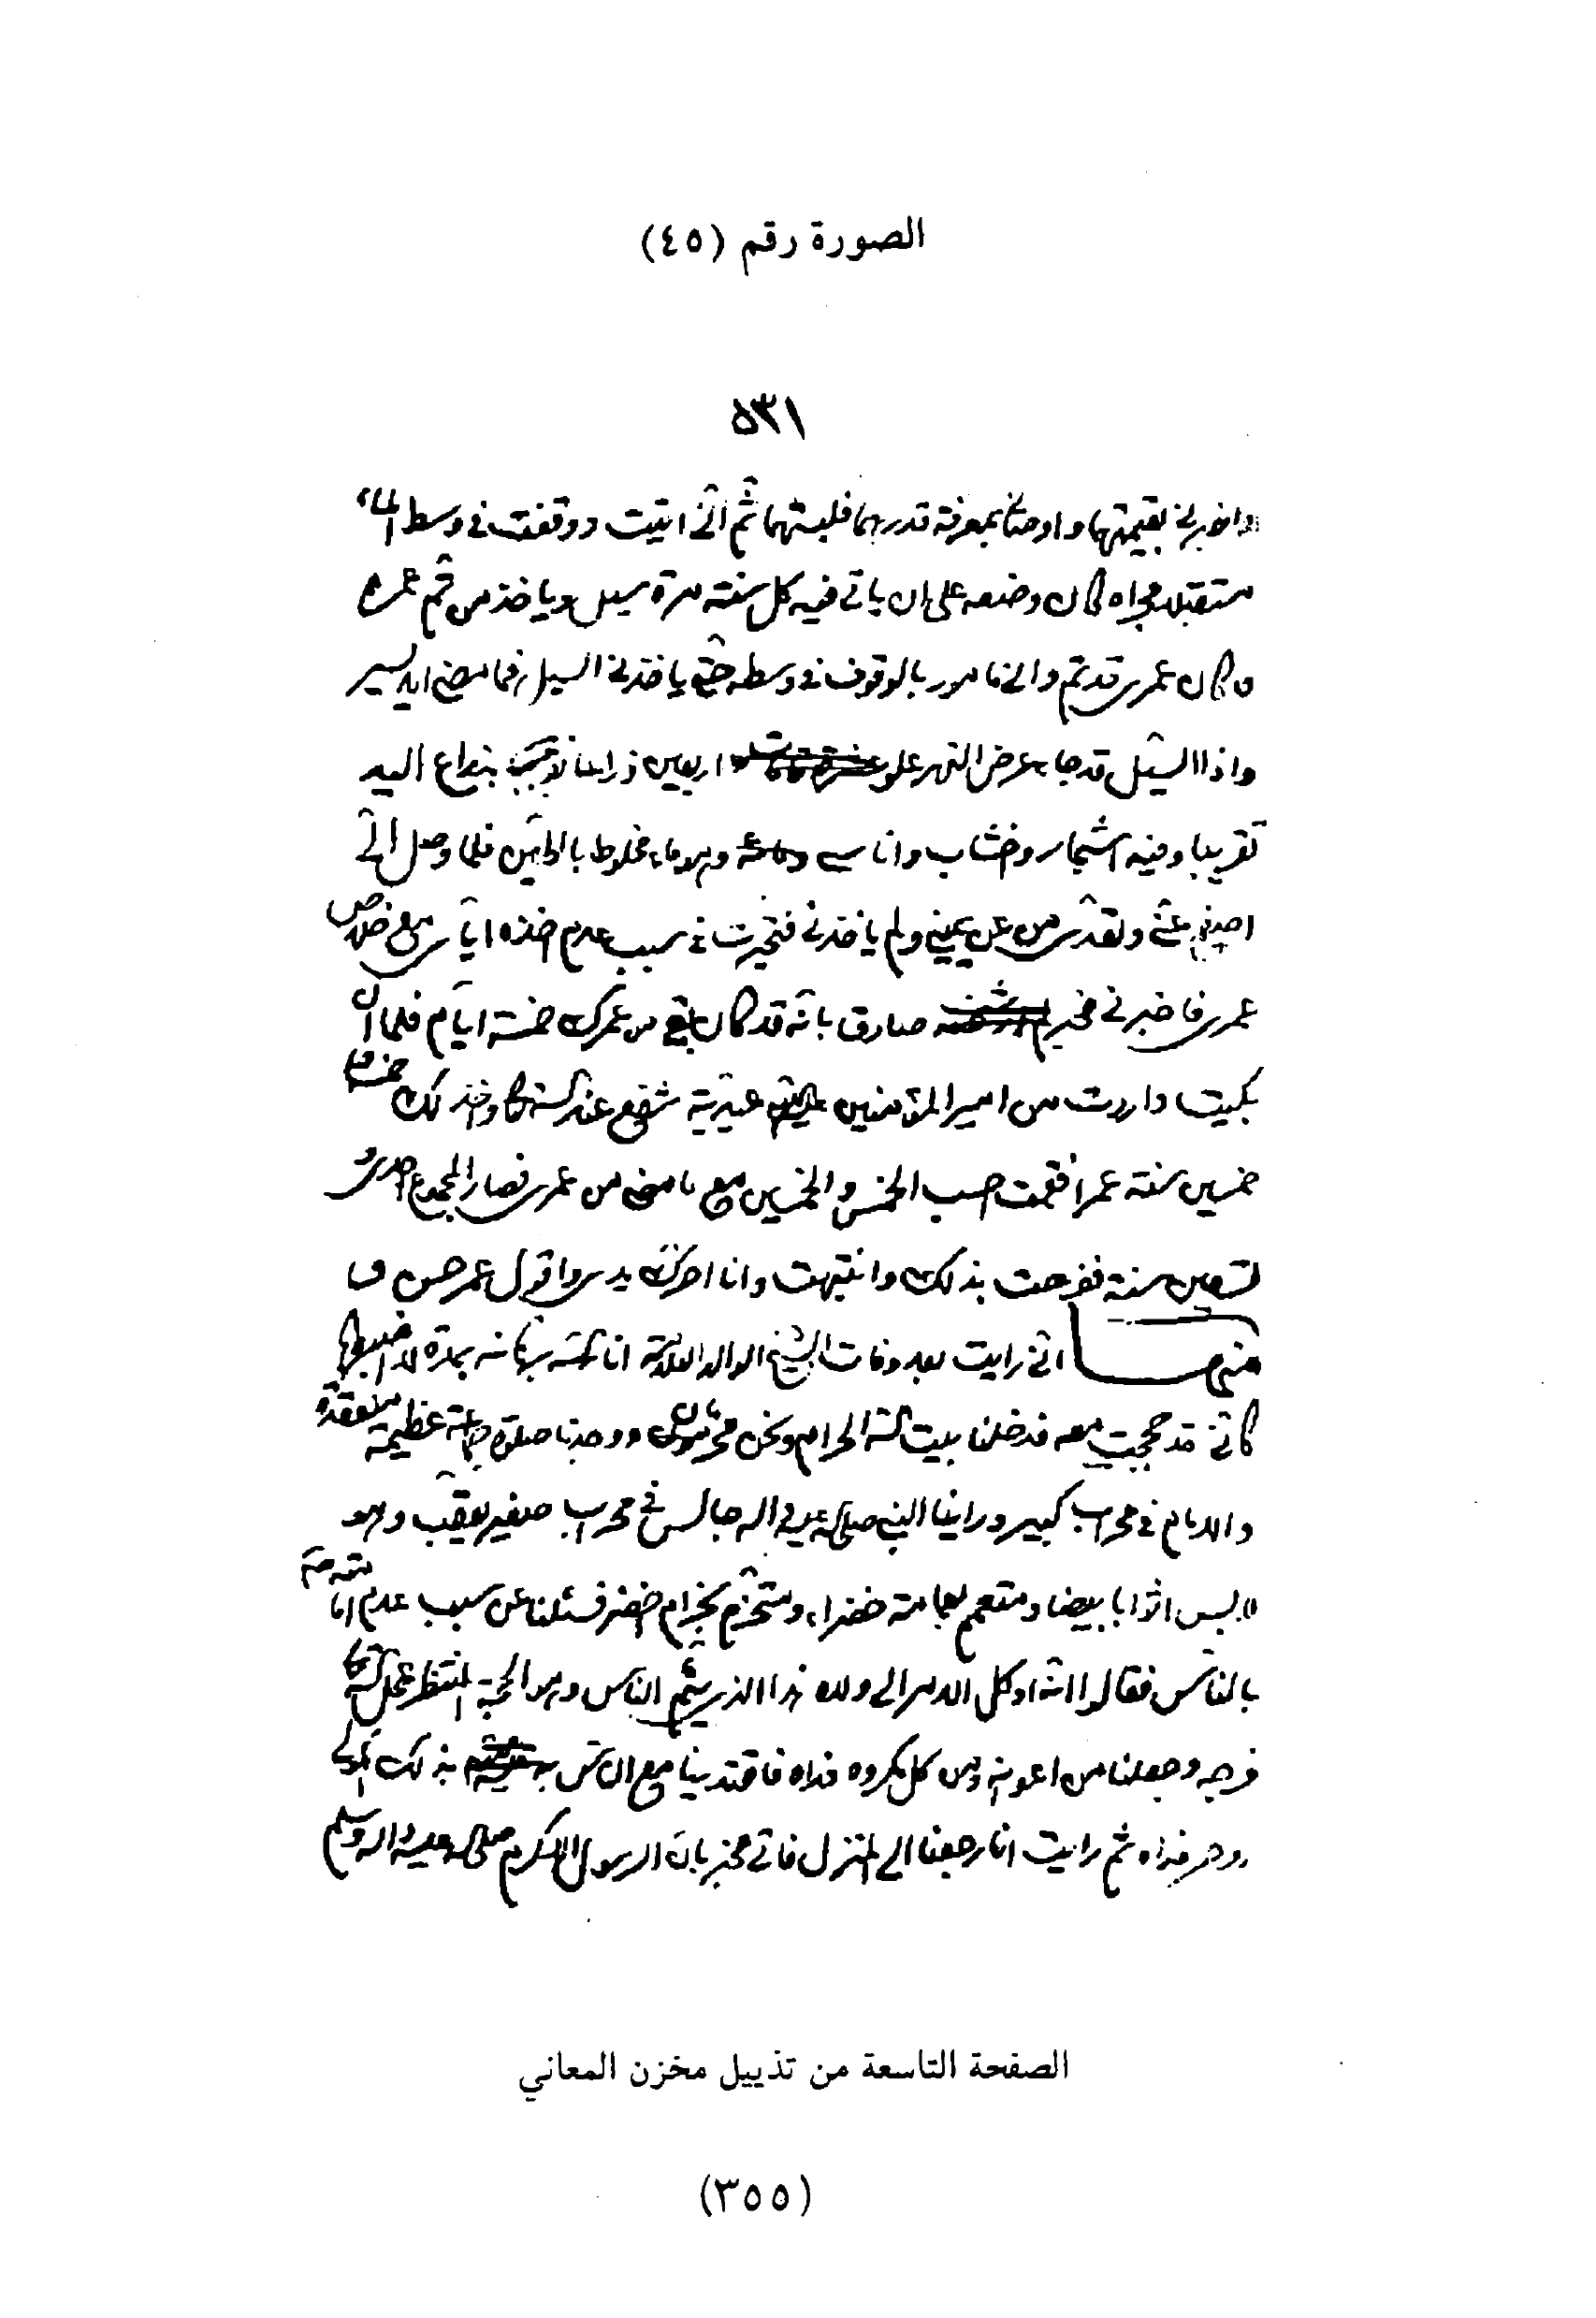 الصورة رقم (٤٥)
٥٣١
واخبرني بقيمتها واوصاني بمعرفة قدرهما فلبستهما ثم انّي اتيت ووقفت في وسط الماء
مستقبلا مجراه وكان وضعه على ان ياتي فيه كل سنة مرة سيل وياخذ من تم عمره
وكان عمري قد تم واني مامور بالوقوف في وسطه حتى ياخذني السيل فما مضى الا يسير
واذا السيل قد جاء بعرض النهر علو اربعين ذراعا بذراع اليد
تقريبا وفيه اشجار واخشاب واناسي وهو ماء مخلوط بالطين فلما وصل اليّ
عني وتعدّى من عن يميني ولم ياخذني فتحيرت في سبب عدم اخذه ايّاي مع خلاص
عمري فاخبرني مخبر صادق بانّه قد كان بقي من عمرك خمسة ايّام فلما ان
بكيت واردت من امير المؤمنين شفع عند الله واخذ لك خمسا و
خمسين سنة عمرا فقمت احسب الخمس والخمسين مع ما مضى من عمري فصار المجموع احدى و
تسعين سنة ففرحت بذلك وانتبهت وانا احرك يدي واقول عمر حسن و
منها انّي رايت بعد وفات الشيخ الوالد العلامة انار الله برهانه بمدة لا اضبطها
كانّي قد حججت معه فدخلنا بيت الله الحرام ونحن محرمون ووجدنا صلوة جماعة عظيمة منعقدة
والامام في محراب كبير وراينا النبي صلى الله عليه واله جالس في محراب صغير وهو
لابس اثوابا بيضا ومتعمم بعمامة خضراء ومتحزم بحزام اخضر فسئلنا عن سبب عدم امامته
بالناس فقالوا انّه اوكل الامر الى ولده هذا الذي يؤم الناس وهو الحجة المنتظر عجل الله
فرجه وجعلنا من اعوانه ومن كل مكروه فداه فاقتدينا مع الناس بذلك المولى
روحي فداه ثم رايت انا رجعنا الى المنزل فاتى مخبر بان الرسول الاكرم صلى الله عليه واله وسلم
الصفحة التاسعة من تذييل مخزن المعاني
(٣٥٥)